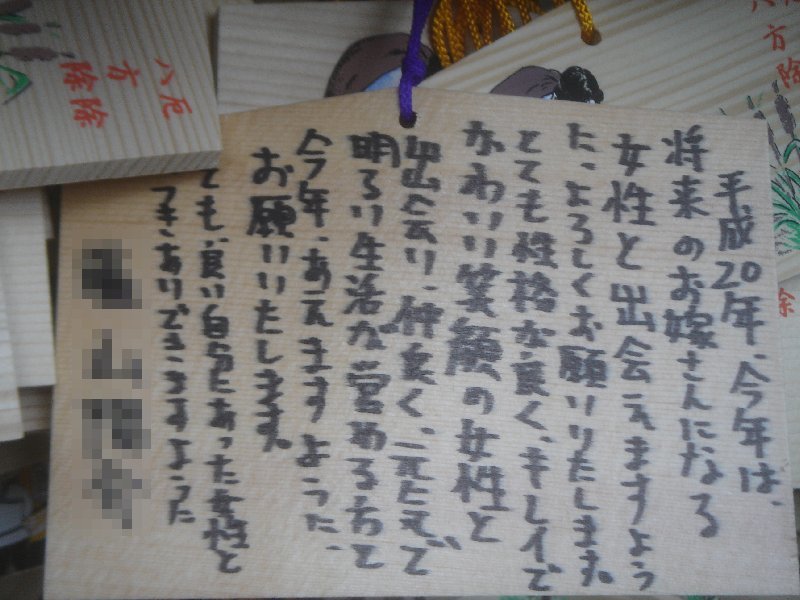 平成20年、今年は、
将来のお嫁さんになる
女性と出会えますよう
に、よろしくお願いいたします。
とても性格が良く、キレイで
かわいい笑顔の女性と
出会い、仲良く、元気で
明るい生活が営める方と
今年、あえますように、
お願いいたします。
ても、良い自分にあった女性と
つきあいできますように
厄除
八方除
八方除